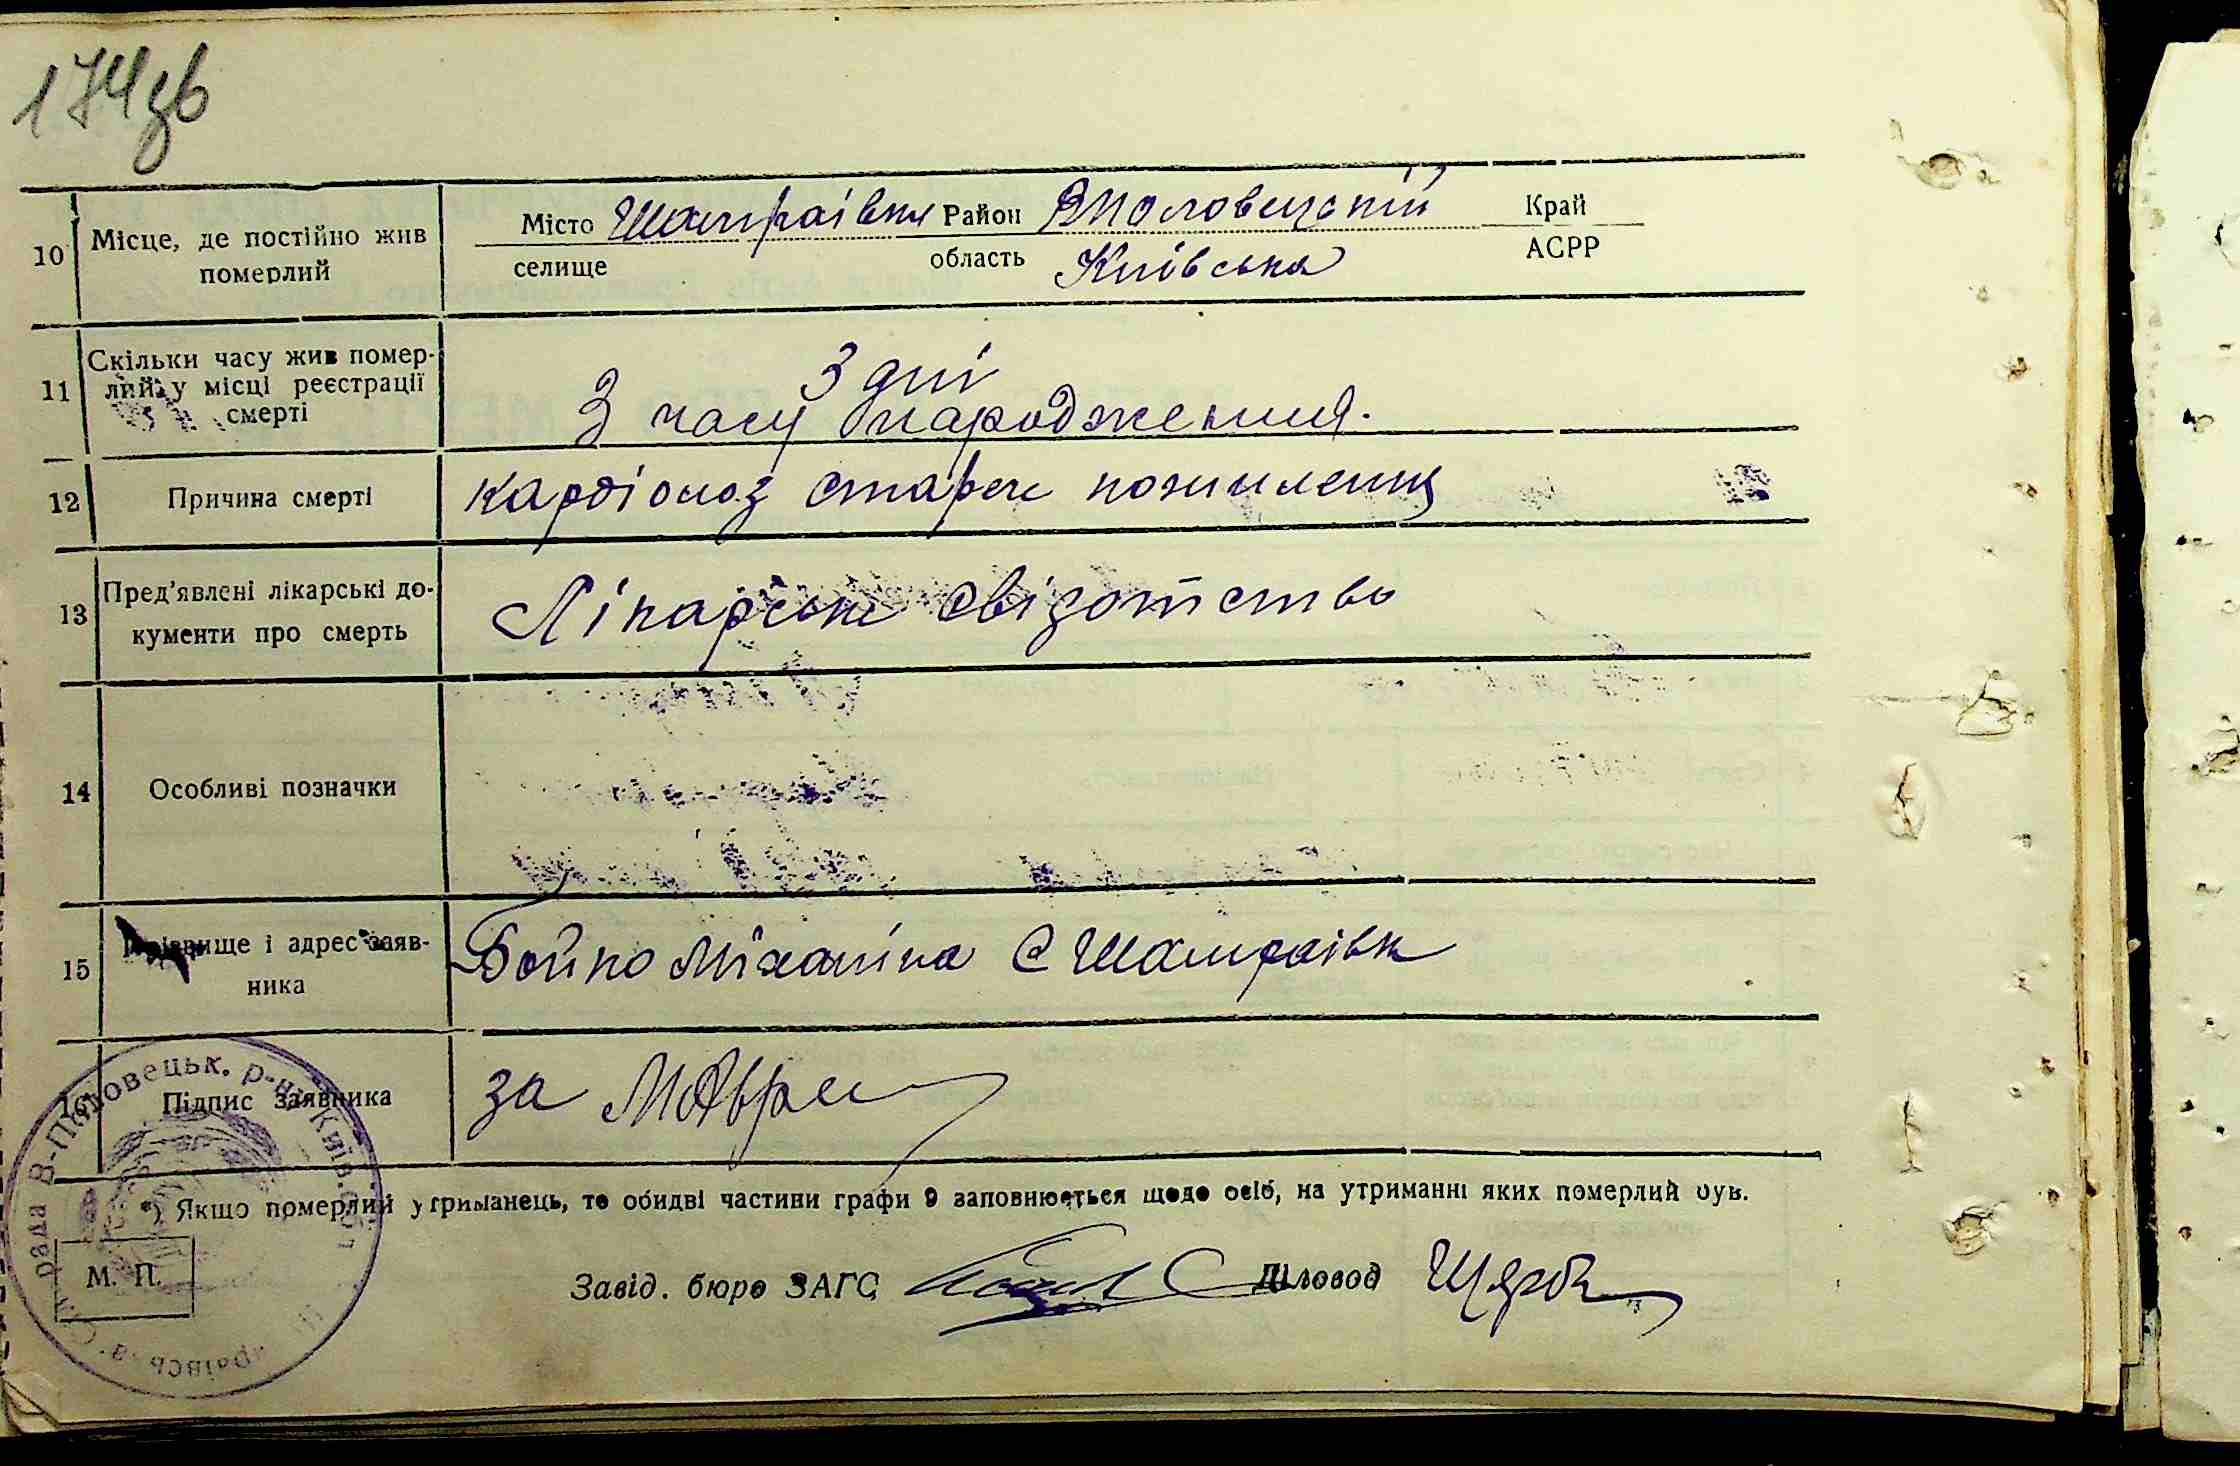 174зв
10 Місце, де постійно жив померлий
Місто Шамраївка Район Вполовецький Край
селище область Київська АСРР
11 Скільки часу жив померлий у місці реєстрації смерті
3 дні
З часу народження.
12 Причина смерті
кардіоскоз старече
13 Пред'явлені лікарські документи про смерть
Лікарське свізотство
14 Особливі позначки
15 Прізвище і адрес заявника
Бойко Міхаліна С Шамраївк
16 Підпис заявника
за
*) Якщо померлий утриманець, то обидві частини графи 9 заповнюється щодо осіб, на утриманні яких померлий був.
М. П.
Завід. бюро ЗАГС Діловод
рада В-Половецьк. р-ну Київ.